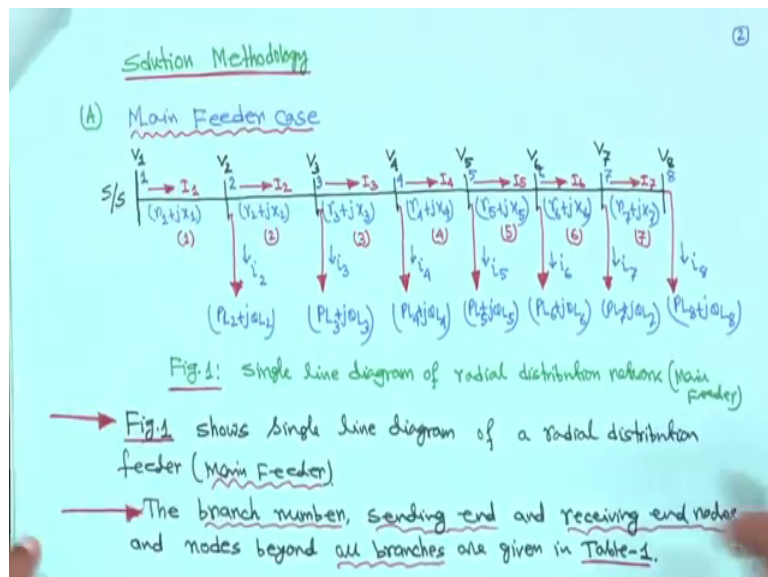 ②
Solution Methodology
(A) Main Feeder Case
V1 V2 V3 V4 V5 V6 V7 V8
S/S 1 → I1 2 → I2 3 → I3 4 → I4 5 → I5 6 → I6 7 → I7 8
(r1+jx1) (r2+jx2) (r3+jx3) (r4+jx4) (r5+jx5) (r6+jx6) (r7+jx7)
(1) (2) (3) (4) (5) (6) (7)
↓i2 ↓i3 ↓i4 ↓i5 ↓i6 ↓i7 ↓i8
(PL2+jQL2) (PL3+jQL3) (PL4+jQL4) (PL5+jQL5) (PL6+jQL6) (PL7+jQL7) (PL8+jQL8)
Fig.1: Single line diagram of radial distribution network (Main
Feeder)
Fig.1 shows single line diagram of a radial distribution
feeder (Main Feeder)
The branch number, sending end and receiving end nodes
and nodes beyond all branches are given in Table-1.